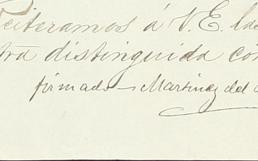 reiteramos á V.E. las
tra distinguida con
firmado - Martinez del